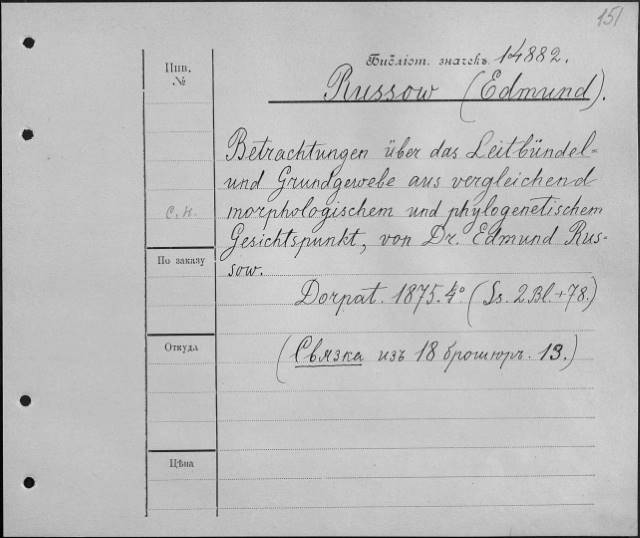 151
Библіот. значекъ 14882.
Инв.
№
Russow (Edmund).
Betrachtungen über das Leitbündel=
und Grundgewebe aus vergleichend
morphologischem und phylogenetischem
с.н.
Gesichtspunkt, von Dr. Edmund Rus=
sow.
По заказу
Dorpat. 1875. 4º (Ss. 2 Bl. + 78.)
Откуда
(Связка изъ 18 брошюръ. 13.)
Цѣна